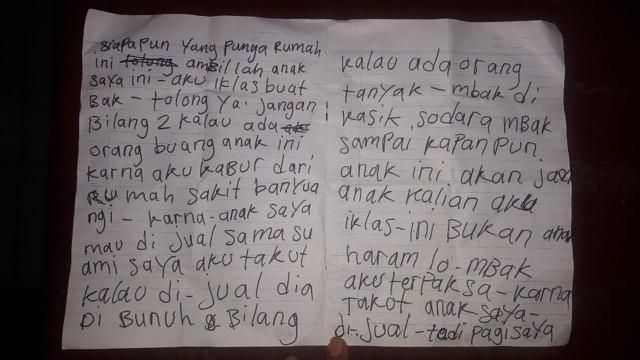 siapapun yang punga rumah
ini tolong ambillah anak
saya ini - aku iklas buat
Bak - tolong ya. jangan
Bilang 2 kalau ada
orang buang anak ini
karna aku kabur dari
rumah sakit banyua
ngi - karna - anak saya
mau di jual sama su
ami saya aku takut
kalau di - jual dia
Di Bunuh Bilang
kalau ada orang
tanyak - mbak di
kasik sodara mBak
sampai kapanpun.
anak ini akan jadi
anak kalian aku
iklas - ini Bukan anak
haram lo - mBak
aku terpaksa - karna
Takut anak saya -
di - jual - tadi pagi saya